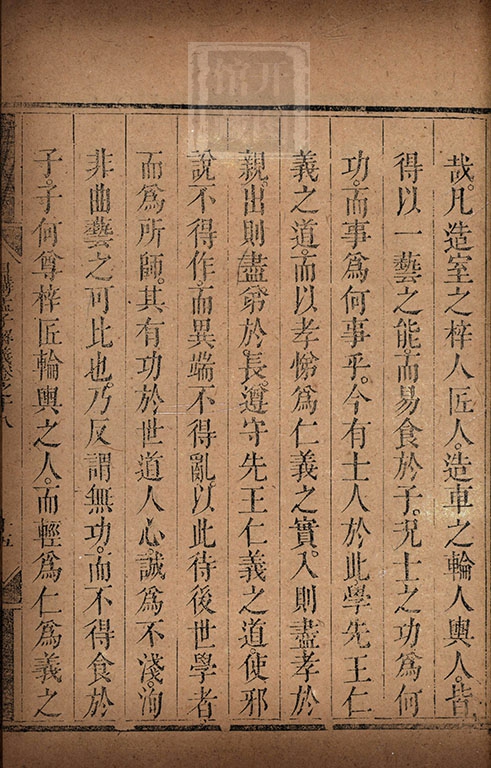 哉。凡造室之梓人匠人。造車之輪人輿人。皆
得以一藝之能。而易食於子。况士之功爲何
功。而事爲何事乎。今有士人於此。學先王仁
義之道。而以孝悌爲仁義之實。入則盡孝於
親。出則盡弟於長。遵守先王仁義之道。使邪
說不得作。而異端不得亂。以此待後世學者
而爲所師。其有功於世道人心。誠爲不淺。洵
非曲藝之可比也。乃反謂無功。而不得食於
子。子何尊梓匠輪輿之人。而輕爲仁爲義之